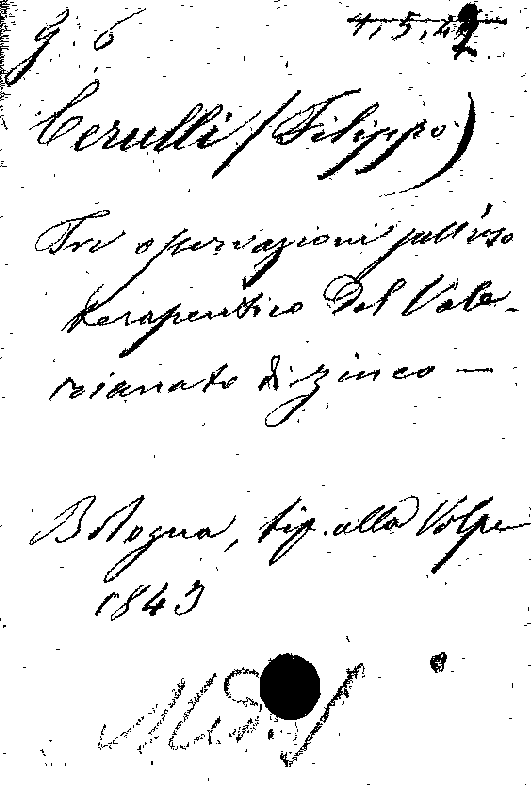 G. 6 4,5,42
Cerulli (Filippo)
Tre osservazioni sull'uso
terapeutico del Vale-
rianato di zinco —
Bologna, tip. alla Volpe
1843